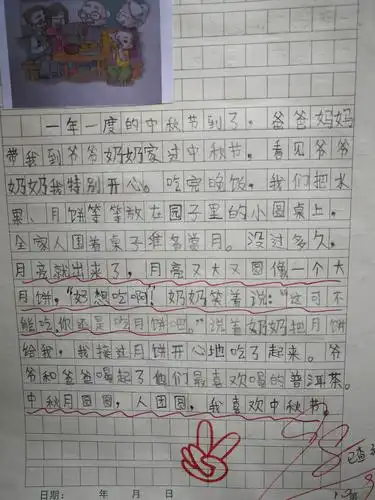 一年一度的中秋节到了。爸爸妈妈
带我到爷爷奶奶家过中秋节。看见爷爷
奶奶我特别开心。吃完的饭，我们把水
果、月饼等等放在园子里的小圆桌上。
全家人围着桌子准备赏月。没过多久，
月亮就出来了，月亮又大又圆像一个大
月饼，“好想吃啊！”奶奶笑着说：“这可不
能吃，你还是吃月饼吧。”说着奶奶把月饼
给我，我接过月饼开心地吃了起来。爷
爷和爸爸喝起了他们最喜欢喝的普洱茶。
中秋月圆圆，人团圆，我喜欢中秋节。
98
已查
日期： 年 月 日